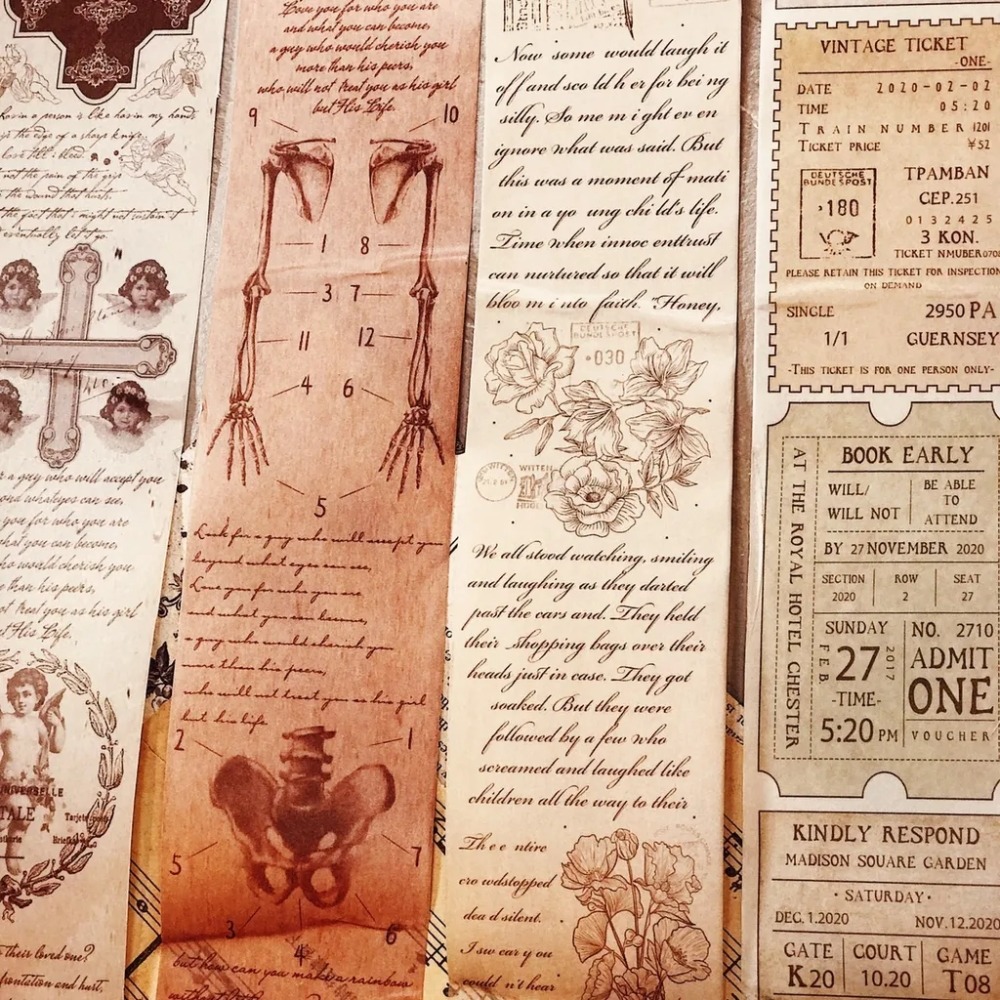 the edge of a sharp knife.
not the pain of the grip
the wound that hurts.
eventually let's go.
a guy who will accept you
you for who you are
what you can become,
who would cherish you
than his peers,
not treat you as his girl
but His Life.
UNIVERSELLE
their loved one?
and hurt,
Love you for who you are
and what you can become,
a guy who would cherish you
more than his peers,
who will not treat you as his girl
but His Life.
9 10
1 8
3 7
11 12
4 6
5
Look for a guy who will accept you
beyond what eyes can see,
Love you for who you are
and what you can become,
a guy who would cherish you
more than his peers,
who will not treat you as his girl
but his life
2 1
5 7
3 4 6
but how can you make a rainbow
Now some would laugh it
off and sco ld h er for bei ng
silly. So me m i ght ev en
ignore what was said. But
this was a moment of mati
on in a yo ung chi ld's life.
Time when innoc enttrust
can nurtured so that it will
bloo m i nto faith. "Honey,
DEUTSCHE
BUNDESPOST
·030
WITTEN
We all stood watching, smiling
and laughing as they darted
past the cars and. They held
their shopping bags over their
heads just in case. They got
soaked. But they were
followed by a few who
screamed and laughed like
children all the way to their
Th e e ntire
cro wdstopped
dea d silent.
I sw ear y ou
could n't hear
VINTAGE TICKET
-ONE-
DATE 2020-02-02
TIME 05:20
TRAIN NUMBER 1201
TICKET PRICE ¥52
DEUTSCHE
BUNDESPOST
·180
TPAMBAN
CEP.251
0132425
3 KON.
TICKET NMUBER
PLEASE RETAIN THIS TICKET FOR INSPECTION
ON DEMAND
SINGLE 2950 PA
1/1 GUERNSEY
-THIS TICKET IS FOR ONE PERSON ONLY-
AT THE ROYAL HOTEL CHESTER
BOOK EARLY
WILL/
WILL NOT
BE ABLE
TO
ATTEND
BY 27 NOVEMBER 2020
SECTION ROW SEAT
2020 2 27
SUNDAY
FEB. 27 2017
-TIME-
5:20 PM
NO. 2710
ADMIT
ONE
VOUCHER
KINDLY RESPOND
MADISON SOUARE GARDEN
· SATURDAY ·
DEC.1.2020 NOV.12.2020
GATE COURT GAME
K20 10.20 T08